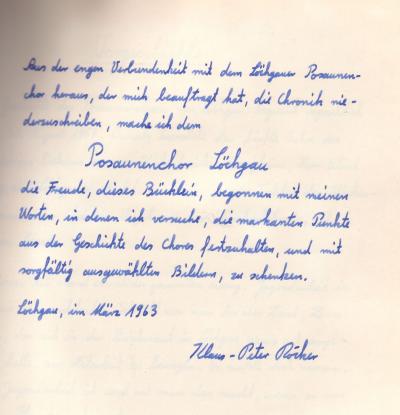 Aus der engen Verbundenheit mit dem Löchgauer Posaunen-
chor heraus, der mich beauftragt hat, die Chronik nie-
derzuschreiben, mache ich dem
Posaunenchor Löchgau
die Freude, dieses Büchlein, begonnen mit meinen
Worten, in denen ich versuche, die markanten Punkte
aus der Geschichte des Chores festzuhalten, und mit
sorgfältig ausgewählten Bildern, zu schenken.
Löchgau, im März 1963
Klaus-Peter Röcker